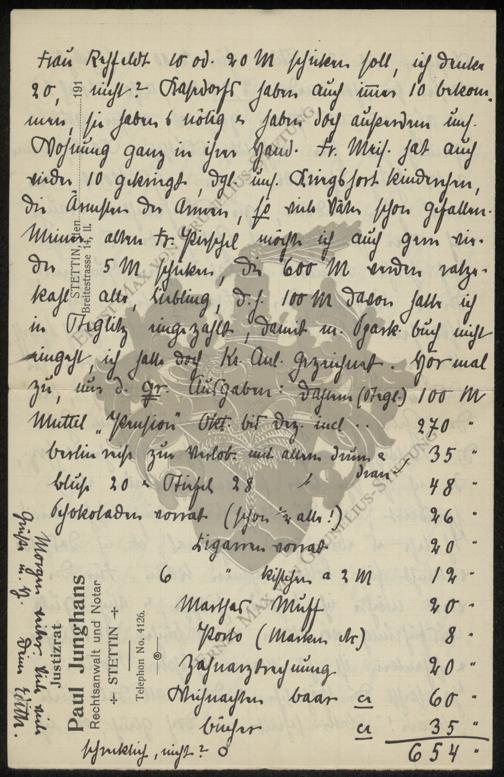 Frau Rehfeldt 10 od. 20 M schicken soll, ich denke
20, nicht? Kasdorfs haben auch immer 10 bekom-
men, sie haben's nötig u. haben doch außerdem uns.
Wohnung ganz in ihrer Hand. Fr. Meih. hat auch
wieder 10 gekriegt, dgl. uns. Kinderchen,
die Ärmsten der Armen, so viele Väter schon gefallen.
Meiner alten Fr. möchte ich auch gern wie-
der 5 M schicken, die 600 M werden ratze-
kahl alle, Liebling, d.h. 100 M davon hatte ich
in Steglitz eingezahlt, damit m. Spark. buch nicht
eingeht, ich hatte doch Kr. Anl. gezeichnet. Hör mal
zu, nur d. gr. Ausgaben: Dahlem (Stegl.) 100 M
Muttel "Pension" Okt. bis Dez. incl .. 270 "
Berlin reise zur Verlob. mit allem drum u. dran 35 "
Bluse 20 u. Stiefel 28 48 "
Schokoladen vorrat (schon 1/2 alle!) 26 "
Zigarren vorrat 20 "
6 " Kistchen a 2 M 12 "
Marthas Muff 20 "
Porto (Marken etc) 8 "
Zahnarztrechnung 20 "
Weihnachten baar ca 60 "
bücher ca 35 "
schrecklich, nicht? 654 "
Morgen lieber viel viel
Grüße u. Dein
STETTIN, den 191
Breitestrasse 14, II.
Justizrat
Paul Junghans
Rechtsanwalt und Notar
+ STETTIN +
Telephon No. 4126.